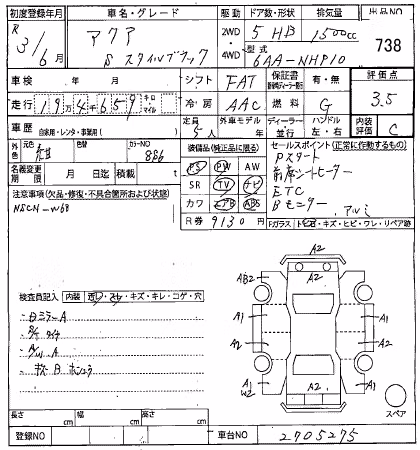 初度登録年月 車名・グレード 駆動 ドア数・形状 排気量 出品NO
R 3/6月 アクア Sスタイルブラック 2WD・4WD 5 HB 1500cc 738
型式 6AA-MXPK10
車検 年 月 シフト FAT 保証書 有・無 評価点 3.5
走行 19万4千659 キロ・マイル 冷房 AAC 燃料 G
車歴 自家用・レンタ・事業用( ) 定員 5人 外車モデル ディーラー・並行 ハンドル 左・右 内装評価 C
外色 元色 色替 カラーNO 886
装備品(純正品に限る) セールスポイント(正常に作動するもの)
名義変更期限 月 日迄 積載 t
PS PW AW
SR TV ナビ
カワ エアB ABS
R券 9130 円
Pスタート
前席シートヒーター
ETC
Bモニター
アルミ
注意事項(欠品・修復・不具合箇所および状態)
NSCN-W68
Fガラス トビ石・キズ・ヒビ・ワレ・リペア跡
検査員記入 内装 ヨゴレ・スレ・キズ・キレ・コゲ・穴
・ミラーA
A2
AB2 A1
A1 A2
A2 A1
A1 W2 A2 A1
スペア
長さ cm 幅 cm 高さ cm
登録NO 車台NO 2705275